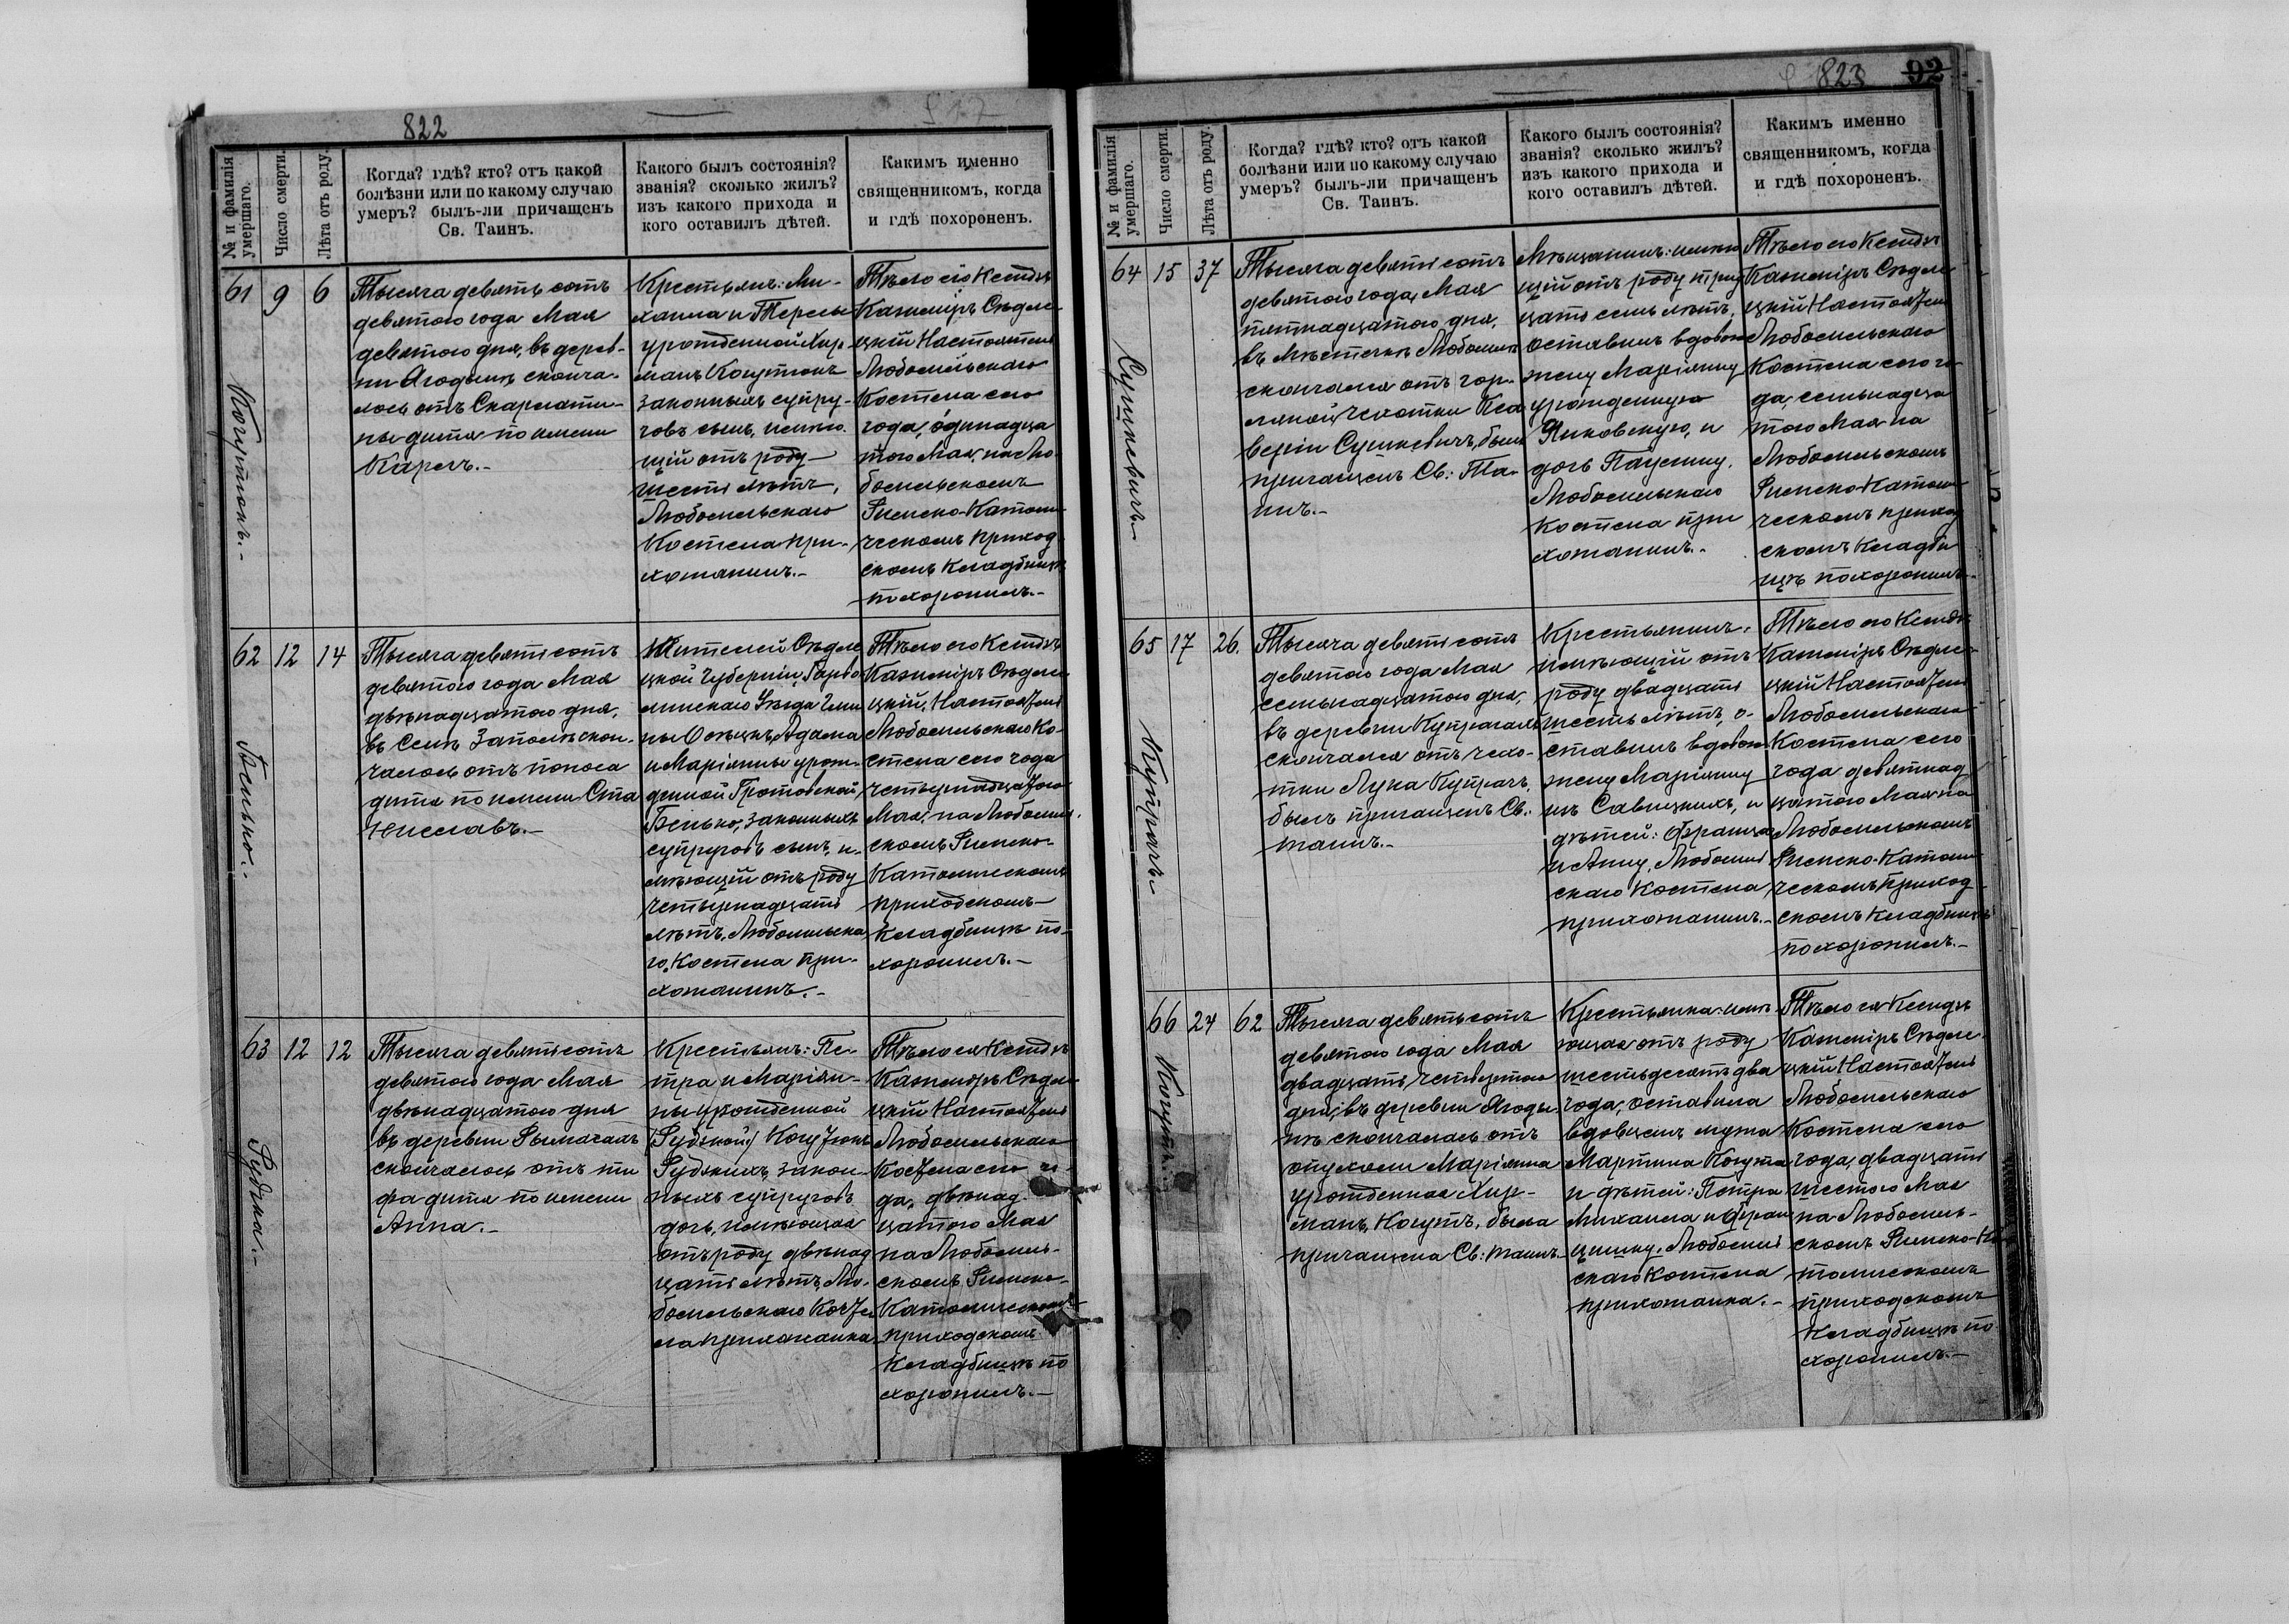 822
№ и фамилія умершаго.
Число смерти.
Лѣта отъ роду.
Когда? гдѣ? кто? отъ какой
болѣзни или по какому случаю
умеръ? былъ-ли причащенъ
Св. Таинъ.
Какого былъ состоянія?
званія? сколько жилъ?
изъ какого прихода и
кого оставилъ дѣтей.
Какимъ именно
священникомъ, когда
и гдѣ похороненъ.
61
Когутюкъ.-
9
6
Тысяча девять сотъ
девятого года Мая
девятого дня, въ дерев-
ни Ягодынѣ сконча-
лось отъ Скарлати-
ны дитя по имени
Карлъ.-
Крестьянъ: Ми-
хаила и Тересы
урожденной Хир
манъ Когутюкъ
законныхъ супру-
говъ сынъ, имѣю-
щій отъ роду
шесть лѣтъ,
Любомльскаго
Костела при-
хожанинъ.-
Тѣло его Ксендзъ
Казиміръ Сѣдле-
цкій Настоятель
Любомльскаго
Костела сего
года, одинадца
того Мая, на Лю-
бомльскомъ
Римско-Католи-
ческомъ приход
скомъ кладбищѣ
похоронилъ.-
62
Бенько.-
12
14
Тысяча девятьсотъ
девятого года Мая
двѣнадцатого дня,
въ Селѣ Заполѣ скон-
чалось отъ поноса
дитя по имени Ста
ниславъ.-
Жителей Сѣдле
цкой Губерніи, Гарво
линскаго Уѣзда Гми
ны Осѣцкъ, Адама
и Маріянны урож-
денной Гротовской,
Бенько, законныхъ
супруговъ сынъ, и-
мѣющій отъ роду
четырнадцать
лѣтъ, Любомльска
го, Костела при-
хожанинъ.-
Тѣло его Ксендзъ
Казиміръ Сѣдле-
цкій, Настоятель
Любомльскаго Ко-
стела сего года
четырнадцатого
Мая, на Любомль-
скомъ Римско-
Католическомъ
приходскомъ
кладбищѣ по-
хоронилъ.-
63
Рудзка.-
12
12
Тысяча девятьсотъ
девятого года Мая
двѣнадцатого дня
въ деревни Рымачахъ
скончалось отъ ти
фа дитя по имени
Анна.-
Крестьянъ: Пе-
тра и Маріян-
ны урожденной
(Рудзкой) Когутюкъ
Рудзкихъ, закон-
ныхъ супруговъ
дочь, имѣющая
отъ роду двѣнад
цать лѣтъ, Лю-
бомльскаго Косте
ла прихожанка
Тѣло ея Ксендзъ
Казиміръ Сѣдле-
цкій Настоятель
Любомльскаго
Костела сего го-
да, двѣнад-
цатого Мая
на Любомль-
скомъ Римско-
Католическомъ
приходскомъ
кладбищѣ по
хоронилъ.-
823 92
№ и фамилія умершаго.
Число смерти.
Лѣта отъ роду.
Когда? гдѣ? кто? отъ какой
болѣзни или по какому случаю
умеръ? былъ-ли причащенъ
Св. Таинъ.
Какого былъ состоянія?
званія? сколько жилъ?
изъ какого прихода и
кого оставилъ дѣтей.
Какимъ именно
священникомъ, когда
и гдѣ похороненъ.
64
Сушкевичъ.-
15
37
Тысяча девятьсотъ
девятого года, Мая
пятнадцатого дня,
въ Мѣстечкѣ Любомлѣ
скончался отъ гор-
ляной чахотки Кса
верій Сушкевичъ, былъ
причащенъ Св: Та-
инъ.-
Мѣщанинъ: имѣю
щій отъ роду трид
цать семь лѣтъ,
оставилъ вдовою
жену Маріянну
урожденную
Янковскую, и
дочь Паулину,
Любомльскаго
Костела при
хожанинъ.-
Тѣло его Ксендзъ
Казиміръ Сѣдле-
цкій Настоятель
Любомльскаго
Костела сего го-
да, семьнадца
того Мая на
Любомльскомъ
Римско-Католи-
ческомъ приход
скомъ кладби
щѣ похоронилъ.-
65
Купрачъ.-
17
26.
Тысяча девятьсотъ
девятого года Мая
семьнадцатого дня,
въ деревни Купрачахъ
скончался отъ чахо-
тки Лука Купрачъ,
былъ причащенъ Св:
таинъ.-
Крестьянинъ:
имѣющій отъ
роду двадцать
шесть лѣтъ, о-
ставилъ вдовою
жену Маріянну
изъ Савицкихъ, и
дѣтей: Франца
и Анну, Любомль
скаго Костела
прихожанинъ.-
Тѣло его Ксендзъ
Казиміръ Сѣдле-
цкій Настоятель
Любомльскаго
Костела сего
года девятнад
цатого Мая на
Любомльскомъ
Римско-Католи-
ческомъ приход
скомъ кладбищѣ
похоронилъ.-
66
Когутъ.-
24
62
Тысяча девятьсотъ
девятого года Мая
двадцать четвертого
дня, въ деревни Ягоды-
нѣ скончалась отъ
опухоли Маріянна
урожденная Хир-
манъ, Когутъ, была
причащена Св: таинъ.-
Крестьянка: имѣ
ющая отъ роду
шестьдесятъ два
года, оставила
вдовцемъ мужа
Мартина Когута
и дѣтей: Петра
Михаила и Фран
цишку, Любомль
скаго Костела
прихожанка.-
Тѣло ея Ксендзъ
Казиміръ Сѣдле-
цкій Настоятель
Любомльскаго
Костела сего
года, двадцать
шестого Мая
на Любомль-
скомъ Римско-Ка
толическомъ
приходскомъ
кладбищѣ по
хоронилъ.-